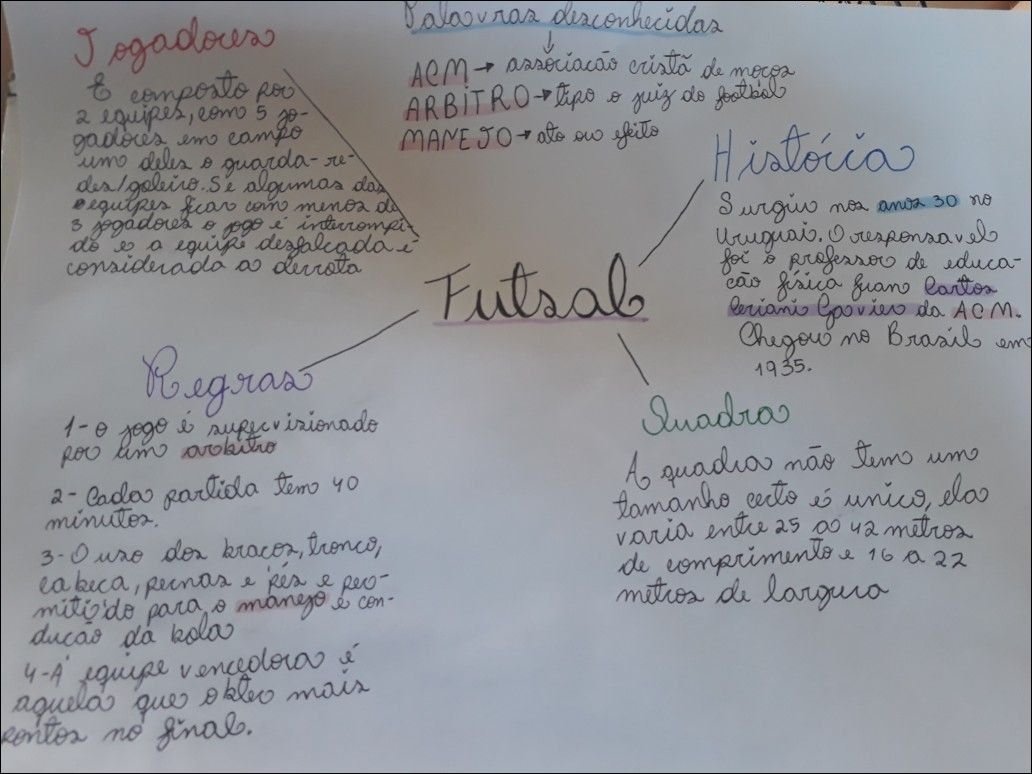 Jogadores
É composto por
2 equipes, com 5 jo-
gadores em campo
um deles o guarda-re-
des/goleiro. Se algumas das
equipes ficar com menos de
3 jogadores o jogo é interrompi-
do e a equipe desfalcada é
considerada a derrota
Palavras desconhecidas
ACM → associação cristã de moços
ARBITRO → tipo o juiz do football
MANEJO → ato ou efeito
História
Surgiu nos anos 30 no
Uruguai. O responsavel
foi o professor de educa-
ção física Juan Carlos
Ceriani Gravier da ACM.
Chegou no Brasil em
1935.
Futsal
Regras
1- o jogo é supervisionado
por um arbitro
2- Cada partida tem 40
minutos.
3- O uso dos braços, tronco,
cabeca, pernas e pés e per-
mitido para o manejo e con-
ducão da bola
4- A equipe vencedora é
aquela que obter mais
pontos no final.
Quadra
A quadra não tem um
tamanho certo é unico, ela
varia entre 25 a 42 metros
de comprimento e 16 a 22
metros de largura